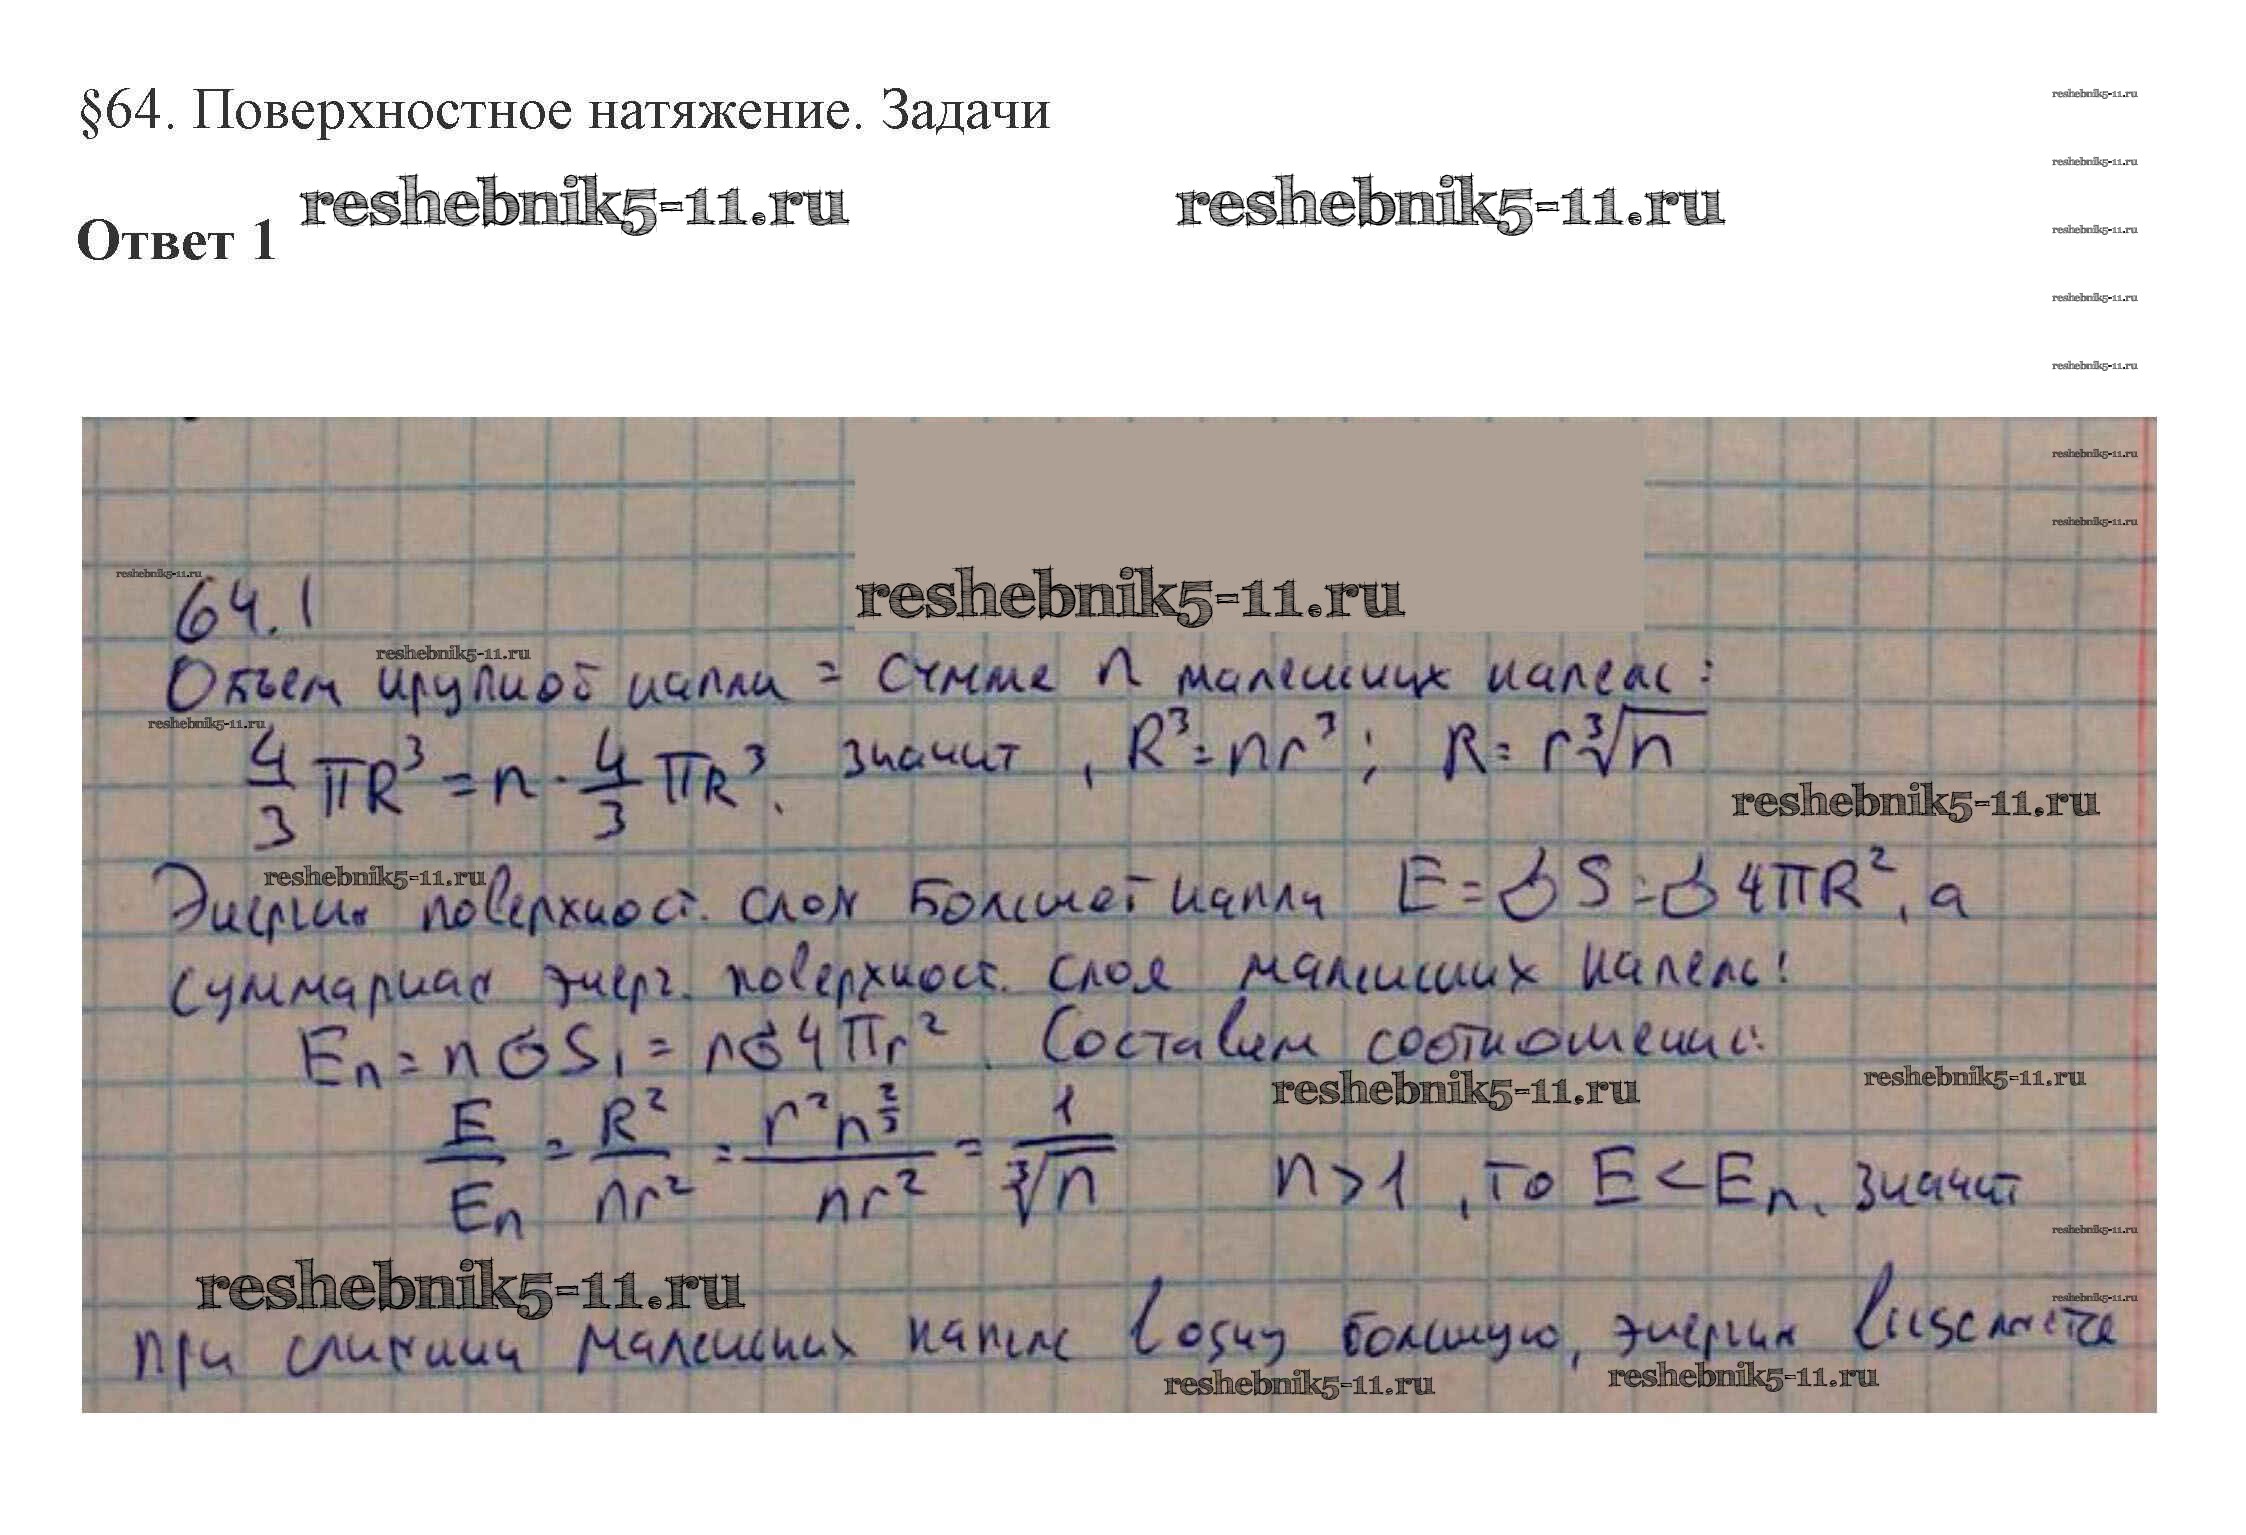 §64. Поверхностное натяжение. Задачи
reshebnik5-11.ru
reshebnik5-11.ru reshebnik5-11.ru
Ответ 1
reshebnik5-11.ru
reshebnik5-11.ru
reshebnik5-11.ru
reshebnik5-11.ru
reshebnik5-11.ru
reshebnik5-11.ru
reshebnik5-11.ru reshebnik5-11.ru
64.1
reshebnik5-11.ru
Объем крупной капли = сумме n маленьких капель:
reshebnik5-11.ru
4/3 πR³ = n · 4/3 πR³. значит, R³ = nr³; R = r∛n
reshebnik5-11.ru
reshebnik5-11.ru
Энергия поверхност. слоя большой капли E = σS = σ4πR², а
суммарная энерг. поверхност. слоя маленьких капель:
Eₙ = nσS₁ = nσ4πr². Составим соотношение:
reshebnik5-11.ru reshebnik5-11.ru
E/Eₙ = R²/nr² = r²n^(2/3)/nr² = 1/∛n n>1, то E < Eₙ. значит
reshebnik5-11.ru
reshebnik5-11.ru reshebnik5-11.ru
при слиянии маленьких капель в одну большую, энергия выделяется
reshebnik5-11.ru reshebnik5-11.ru